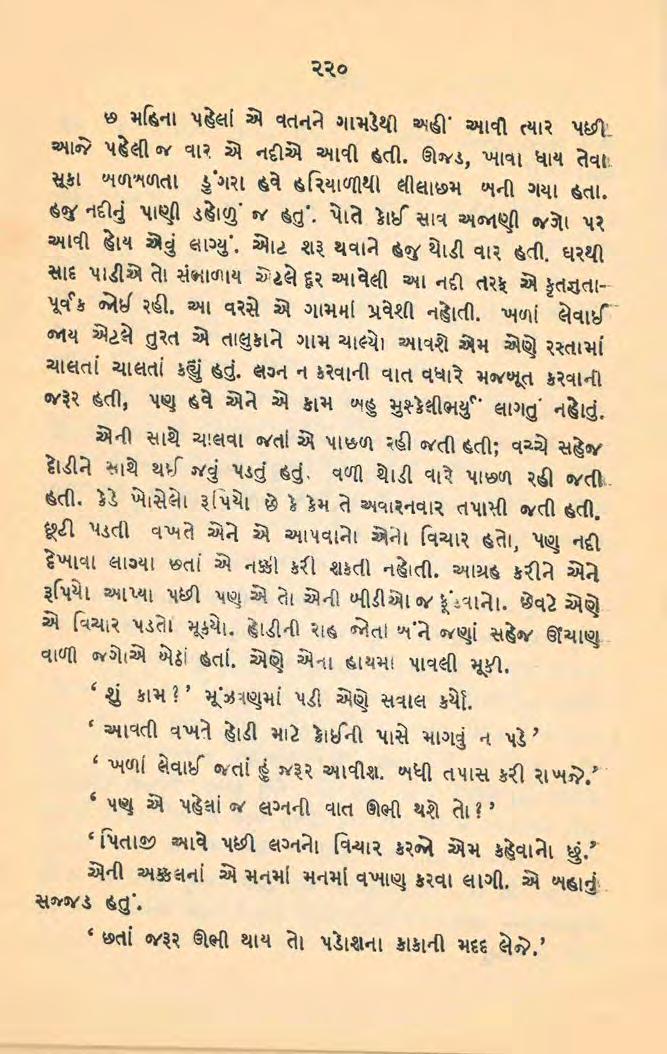 ૨૨૦
છ મહિના પહેલાં એ વતનને ગામડેથી અહીં આવી ત્યાર પછી
આજે પહેલી જ વાર એ નદીએ આવી હતી. ઊજડ, ખાવા ધાય તેવા
સૂકા બળબળતા ડુંગરા હવે હરિયાળીથી લીલાછમ બની ગયા હતા.
હજુ નદીનું પાણી ડહોળું જ હતું. પોતે કોઈ સાવ અજાણી જગો પર
આવી હોય એવું લાગ્યું. ઓટ શરૂ થવાને હજુ થોડી વાર હતી. ઘરથી
સાદ પાડીએ તો સંભળાય એટલે દૂર આવેલી આ નદી તરફ એ કૃતજ્ઞતા-
પૂર્વક જોઈ રહી. આ વરસે એ ગામમાં પ્રવેશી નહોતી. ખળાં લેવાઈ
જાય એટલે તુરત એ તાલુકાને ગામ ચાલ્યો આવશે એમ એણે રસ્તામાં
ચાલતાં ચાલતાં કહ્યું હતું. લગ્ન ન કરવાની વાત વધારે મજબૂત કરવાની
જરૂર હતી, પણ હવે એને એ કામ બહુ મુશ્કેલીભર્યું લાગતું નહોતું.
એની સાથે ચાલવા જતાં એ પાછળ રહી જતી હતી; વચ્ચે સહેજ
દોડીને સાથે થઈ જવું પડતું હતું. વળી થોડી વારે પાછળ રહી જતી
હતી. કેડે ખોસેલો રૂપિયો છે કે કેમ તે અવારનવાર તપાસી જતી હતી.
છૂટી પડતી વખતે એને એ આપવાનો એનો વિચાર હતો, પણ નદી
દેખાવા લાગ્યા છતાં એ નક્કી કરી શકતી નહોતી. આગ્રહ કરીને એને
રૂપિયો આપ્યા પછી પણ એ તો એની બીડીઓ જ ફૂંકવાનો. છેવટે એણે
એ વિચાર પડતો મૂક્યો. હોડીની રાહ જોતા બંને જણાં સહેજ ઊંચાણ
વાળી જગોએ બેઠાં હતાં. એણે એના હાથમાં પાવલી મૂકી.
‘ શું કામ ? ’ મૂંઝવણમાં પડી એણે સવાલ કર્યો.
‘ આવતી વખતે હોડી માટે કોઈની પાસે માગવું ન પડે ’
‘ ખળાં લેવાઈ જતાં હું જરૂર આવીશ. બધી તપાસ કરી રાખજે. ’
‘ પણ એ પહેલાં જ લગ્નની વાત ઊભી થશે તો ? ’
‘ પિતાજી આવે પછી લગ્નનો વિચાર કરજો એમ કહેવાનો છું. ’
એની અક્કલનાં એ મનમાં મનમાં વખાણ કરવા લાગી. એ બહાનું
સજ્જડ હતું.
‘ છતાં જરૂર ઊભી થાય તો પડોશના કાકાની મદદ લેજે. ’